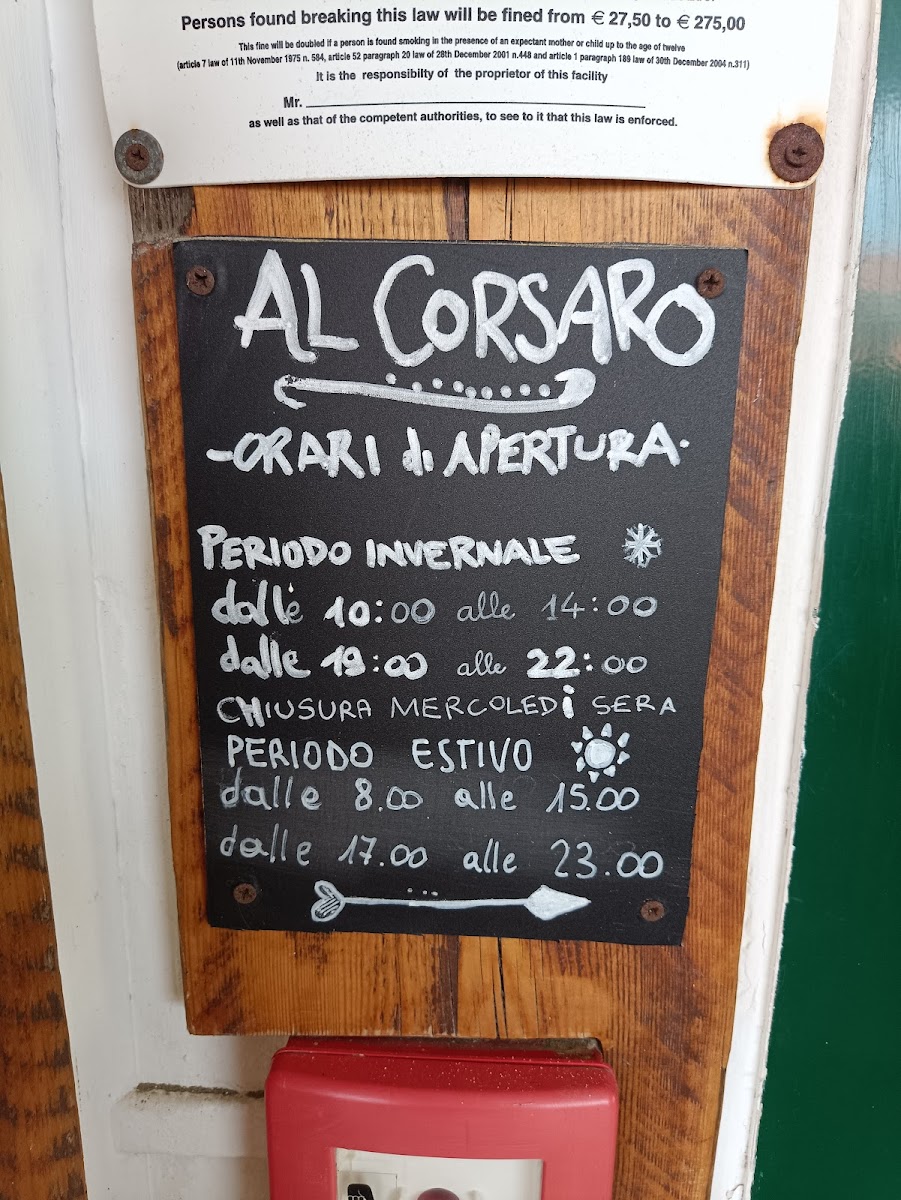 Persons found breaking this law will be fined from € 27,50 to € 275,00
This fine will be doubled if a person is found smoking in the presence of an expectant mother or child up to the age of twelve
(article 7 law of 11th November 1975 n. 584, article 52 paragraph 20 law of 28th December 2001 n.448 and article 1 paragraph 189 law of 30th December 2004 n.311)
It is the responsibilty of the proprietor of this facility
Mr.
as well as that of the competent authorities, to see to it that this law is enforced.
AL CORSARO
-ORARI di APERTURA-
PERIODO INVERNALE
dalle 10:00 alle 14:00
dalle 19:00 alle 22:00
CHIUSURA MERCOLEDÌ SERA
PERIODO ESTIVO
dalle 8.00 alle 15.00
dalle 17.00 alle 23.00